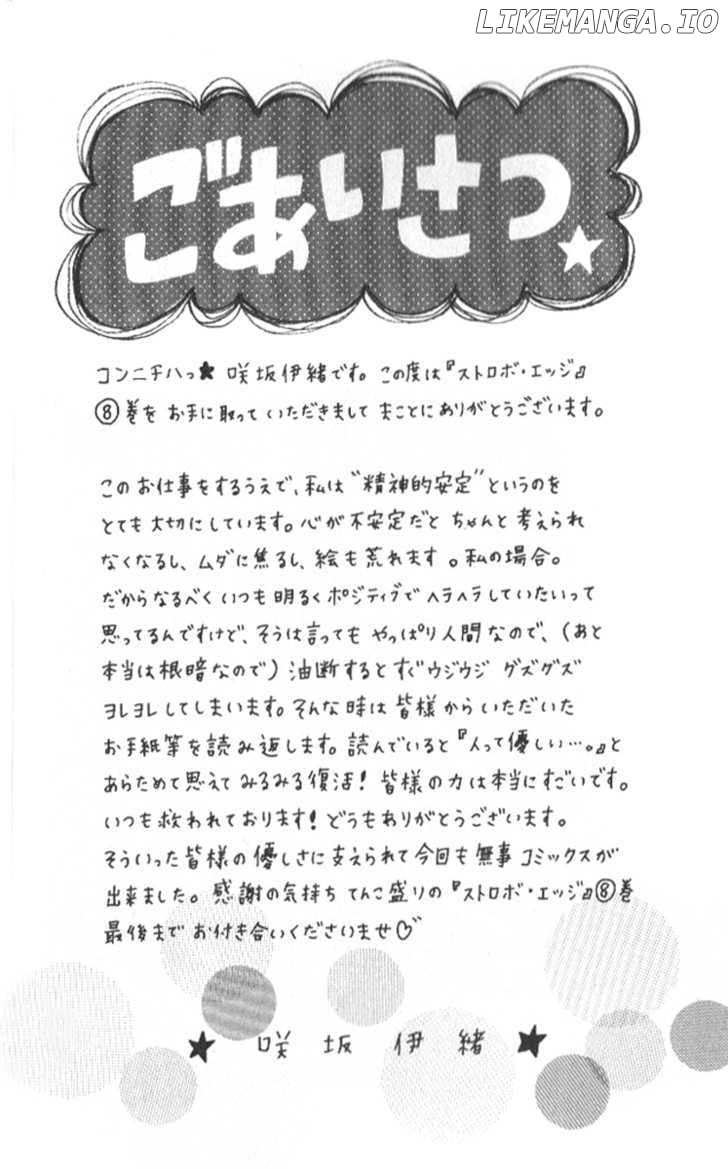 LIKEMANGA.IO
ごあいさつ★
コンニチハっ★ 咲坂伊緒です。この度は『ストロボ・エッジ』
⑧巻を お手に取って いただきまして まことにありがとうございます。
このお仕事をするうえで、私は“精神的安定”というのを
とても大切にしています。心が不安定だと ちゃんと考えられ
なくなるし、ムダに焦るし、絵も荒れます。私の場合。
だからなるべく いつも明るくポジティブで ヘラヘラしていたいって
思ってるんですけど、そうは言っても やっぱり人間なので、(あと
本当は根暗なので) 油断するとすぐウジウジ グズグズ
ヨレヨレしてしまいます。そんな時は 皆様からいただいた
お手紙等を読み返します。読んでいると『人って優しい…。』と
あらためて思えて みるみる復活！ 皆様の力は本当にすごいです。
いつも救われております！どうもありがとうございます。
そういった皆様の優しさに支えられて今回も無事コミックスが
出来ました。感謝の気持ち てんこ盛りの『ストロボ・エッジ』⑧巻
最後まで お付き合いくださいませ♡
★ 咲坂伊緒 ★